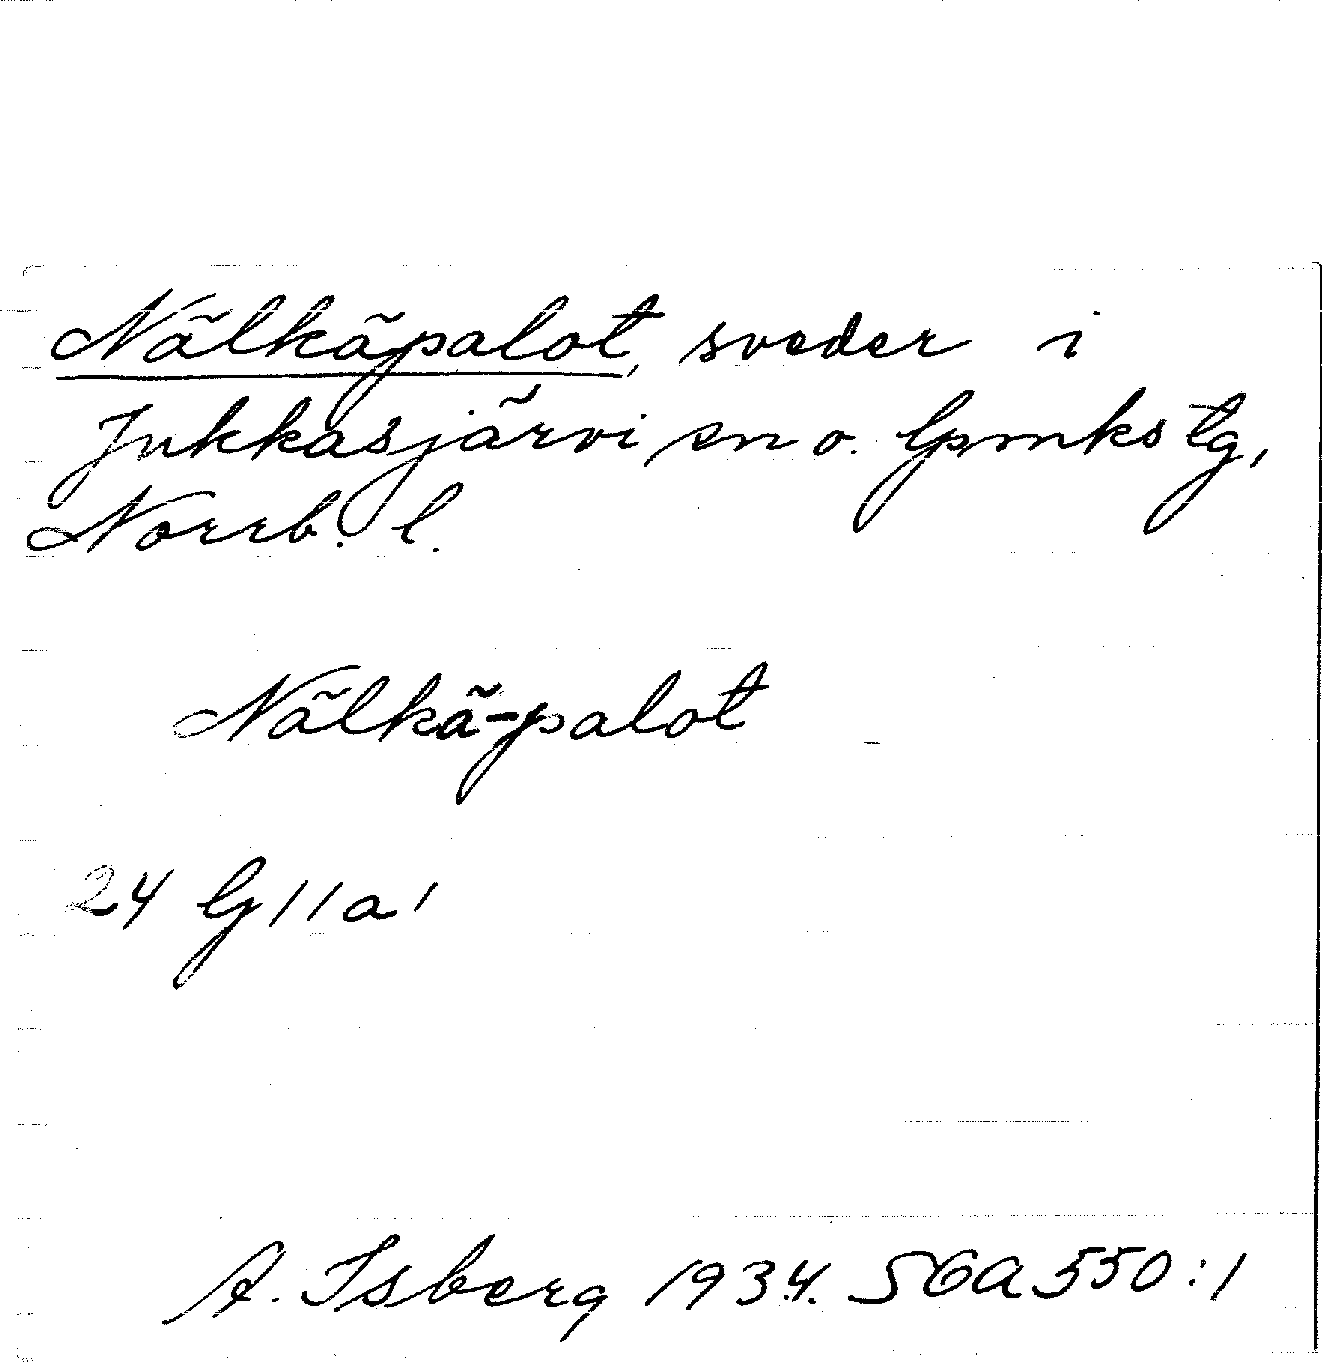 Nälkäpalot, sveder i
Jukkasjärvi sn o. lpmkstg,
Norrb. l.
Nälkä-palot
24 G 11 a 1
A. Isberg 1934. SGA 550:1